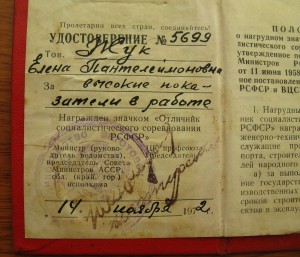 Пролетарии всех стран, соединяйтесь!
УДОСТОВЕРЕНИЕ № 5699
Тов. Жук
Елена Пантелеймоновна
За высокие пока-
затели в работе
Награжден значком «Отличник
социалистического соревнования
РСФСР»
Министр (руково-
дитель ведомства),
председатель Совета
Министров АССР,
обл. (край, гор.)
исполкома
ЦК профсоюза
14 ноября 1972 г.
ПОЛО
о нагрудном значке
листического соре
утвержденное по
Министров Р
от 11 июня 195
новление
РСФСР и ВЦС
1. Нагрудны
ник социалист
РСФСР» награ
женерно-техни
жащие
порта, строите
родной
а) за выпол
ние государст
производствен
сроков строител
ектов в эксплуа